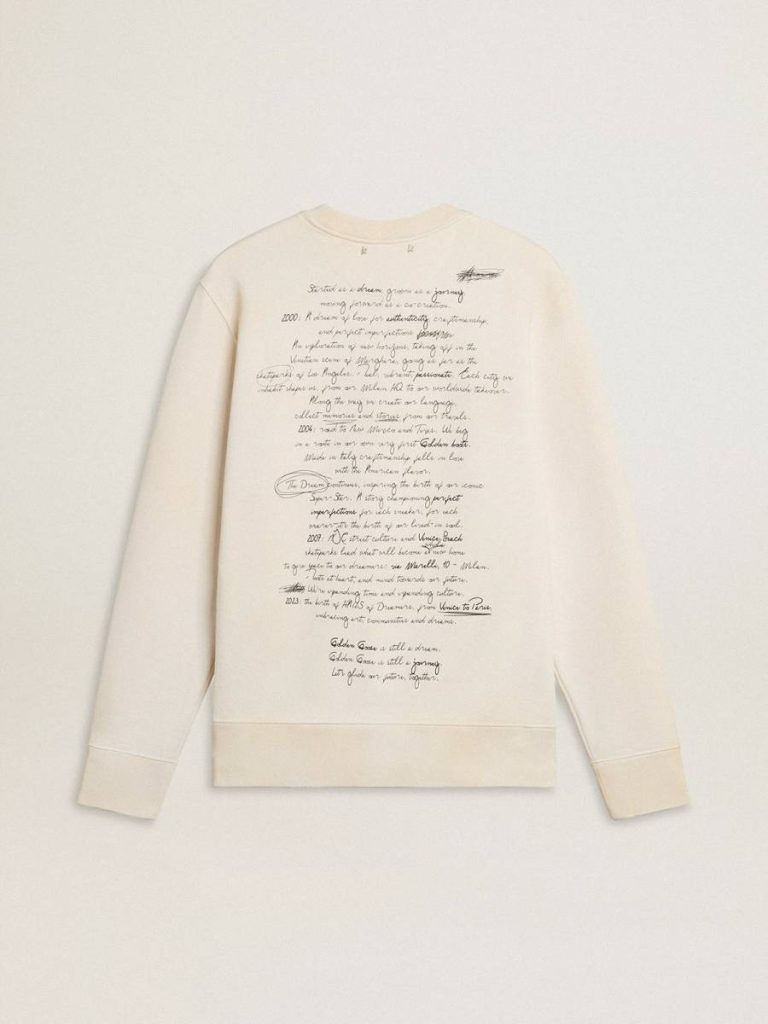 Started as a dream, grown as a journey
moving forward as a co-creation.
2000: A dream of love for authenticity, craftsmanship,
and perfect imperfections
An exploration of new horizons, taking off in the
Venetian scene of Marghera, going as far as the
skateparks of Los Angeles, - bel, vibrant, passionate. Each city we
inhabit shapes us, from our Milan HQ to our worldwide takeover.
Along the way we create our language,
collect memories and stories from our travels.
2004: road to New Mexico and Texas. We beg
in a route in our own very first Golden boots.
Made in Italy craftsmanship fells in love
with the American flavor.
The Dream continues, inspiring the birth of our iconic
Super-Star. A story championing perfect
imperfections for each sneaker, for each
wearer it's the birth of our lived-in soul.
2007: street culture and Venice Beach
skateparks lead what will become a new home
to give to our dreamers: via Morelli, 10 - Milan.
at heart, and mind towards our future.
We're spending time and spending culture.
2023: the birth of HAUS of Dreamers, from Venice to Paris,
embracing art, communities and dreams.
Golden Goose is still a dream.
Golden Goose is still a journey.
Let's glide our future, together.